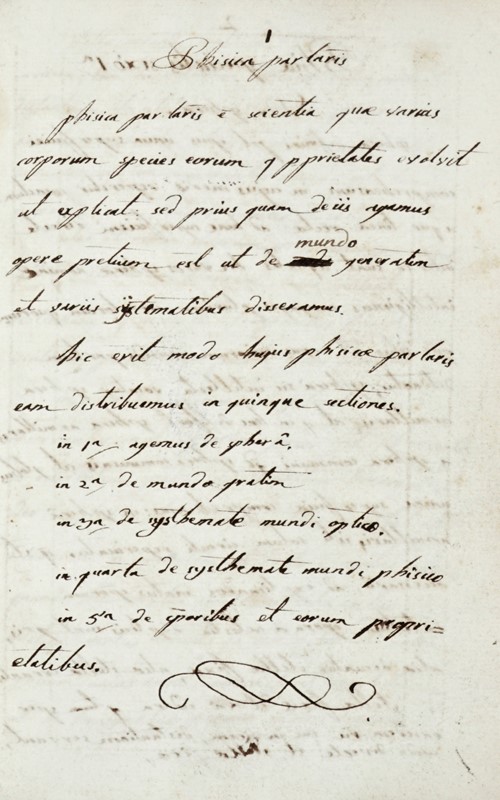 1
Phisica par laris
phisica par laris ē scientia quæ varias
corporum species eorum q pprietates evolvit
ut explicat: sed prius quam de iis agamus
opere pretium est ut de mundo generatim
et variis systematibus disseramus.
hic erit modo hujus phisicæ par laris
eam distribuemus in quinque sectiones.
in 1ª agemus de spherâ.
in 2ª de mundo gratim
in 3ª de systhemate mundi optico.
in quarta de systhemate mundi phisico
in 5ª de cporibus et eorum propri=
etatibus.